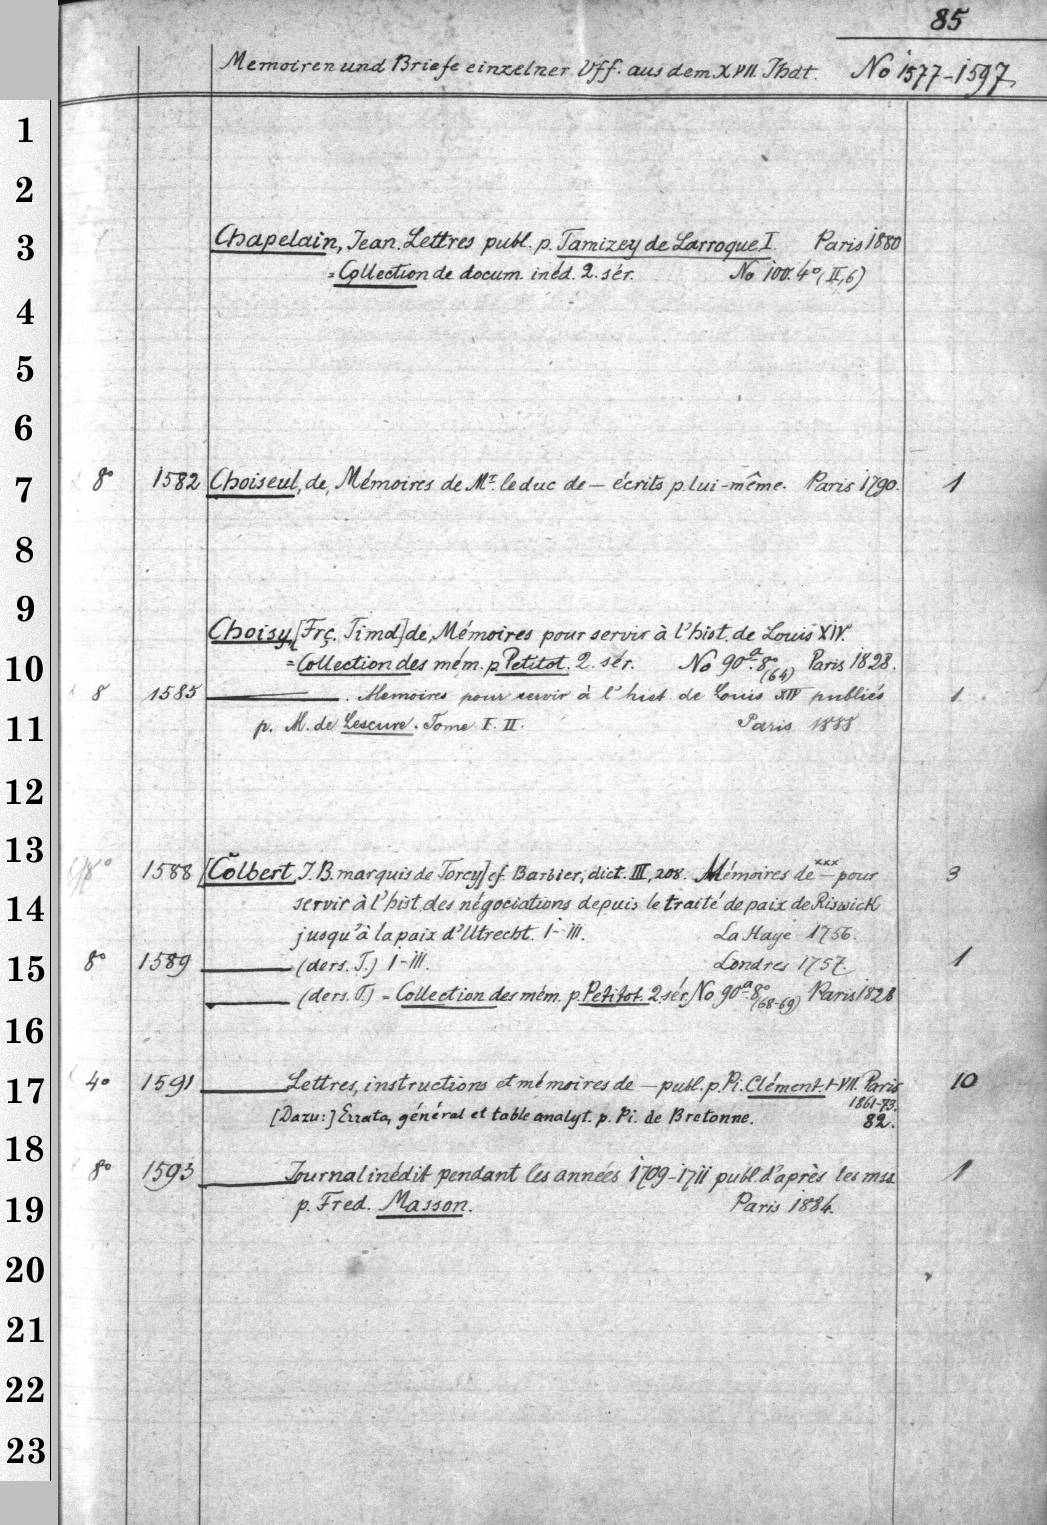 85
Memoiren und Briefe einzelner Vff. aus dem XVII. Jhdt. No 1577-1597
1
2
3 Chapelain, Jean. Lettres publ. p. Tamizey de Larroque I. Paris 1880
= Collection de docum. inéd. 2. sér. No 100. 4° (II,6)
4
5
6
7 8° 1582 Choiseul, de, Mémoires de Mr. le duc de — écrits p. lui-même. Paris 1790. 1
8
9
Choisy, [Frç. Timol] de, Mémoires pour servir à l'hist. de Louis XIV.
10 = Collection des mém. p. Petitot. 2. sér. No 90a. 8° (64) Paris 1828.
8 1585 ——. Memoires pour servir à l'hist. de Louis XIV publiés 1
11 p. M. de Lescure. Tome I. II. Paris 1888
12
13
8° 1588 [Colbert, J. B. marquis de Torcy] cf. Barbier, dict. III, 208. Mémoires de xxx — pour 3
14 servir à l'hist. des négociations depuis le traité de paix de Riswick
jusqu'à la paix d'Utrecht. I-III. La Haye 1756.
15 8° 1589 —— (ders. T.) I-III. Londres 1757. 1
—— (ders. T.) = Collection des mém. p. Petitot. 2. sér. No 90a. 8° (68-69) Paris 1828
16
17 4° 1591 —— Lettres, instructions et mémoires de — publ. p. Pi. Clément. I-VII. Paris 10
1861-73.
[Dazu:] Errata, général et table analyt. p. Pi. de Bretonne. 82.
18
8° 1593 —— Journal inédit pendant les années 1709-1711 publ. d'après les mss. 1
19 p. Fred. Masson. Paris 1884.
20
21
22
23